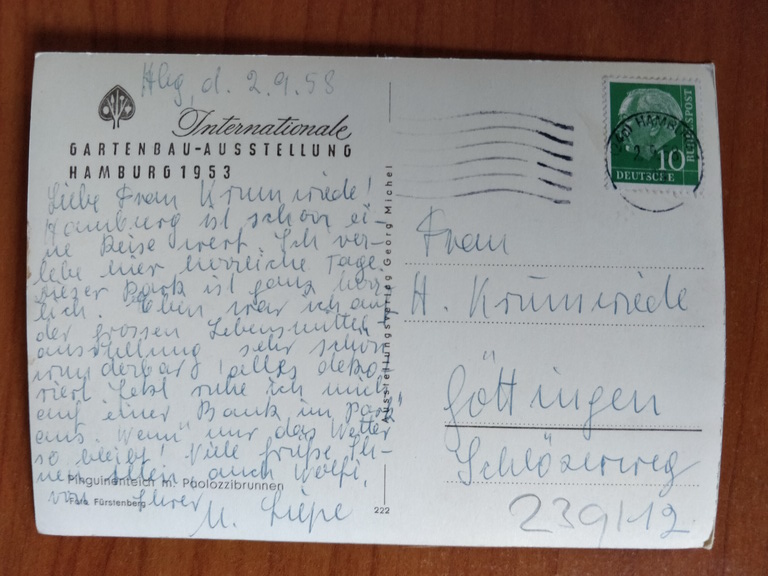 Hbg, d. 2.9.58
Internationale
GARTENBAU-AUSSTELLUNG
HAMBURG 1953
Liebe Frau Krumwiede!
Hamburg ist schon ei-
ne Reise wert. Ich ver-
lebe hier herrliche Tage.
Dieser Park ist ganz herr-
lich. Eben war ich auf
der grossen Lebensmittel-
ausstellung sehr schön
wunderbar! alles deko-
riert. Jetzt ruhe ich mich
auf einer Bank im "Park"
aus. Wenn nur das Wetter
so bleibt! Viele Grüße Ih-
nen allen auch Wolfi,
von Ihrer
M. Liepe
Pinguinenteich m. Paolozzibrunnen
Foto Fürstenberg
222
Ausstellungsverlag Georg Michel
HAMBURG
DEUTSCHE
BUNDESPOST
10
Frau
H. Krumwiede
Göttingen
Schlözerweg
239/12